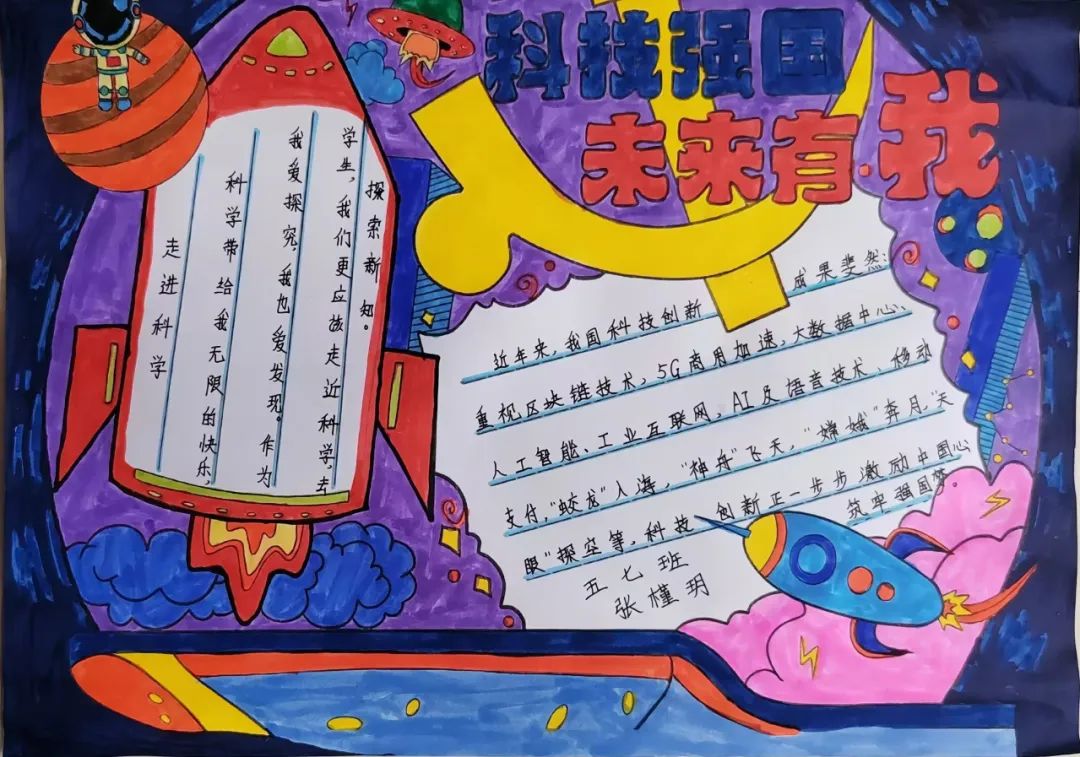 科技强国
未来有我
走进科学
科学带给我无限的快乐,
我爱探究,我也爱发现。作为
学生,我们更应该走近科学,去
探索新知。
近年来,我国科技创新成果斐然:
重视区块链技术,5G商用加速,大数据中心、
人工智能、工业互联网,AI及语音技术、移动
支付,"蛟龙"入海,"神舟"飞天,"嫦娥"奔月,"天
眼"探空等,科技创新正一步步激励中国心
筑牢强国梦
五七班
张槿玥